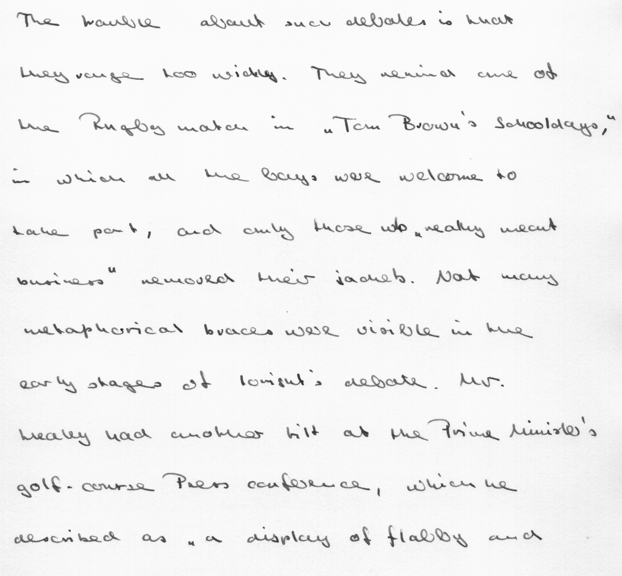 The trouble about such debates is that
they range too widely. They remind one of
the Rugby match in „Tom Brown's Schooldays,"
in which all the boys were welcome to
take part, and only those who „really meant
business" removed their jackets. Not many
metaphorical braces were visible in the
early stages of tonight's debate. Mr.
Healey had another tilt at the Prime Minister's
golf-course Press conference, which he
described as „a display of flabby and